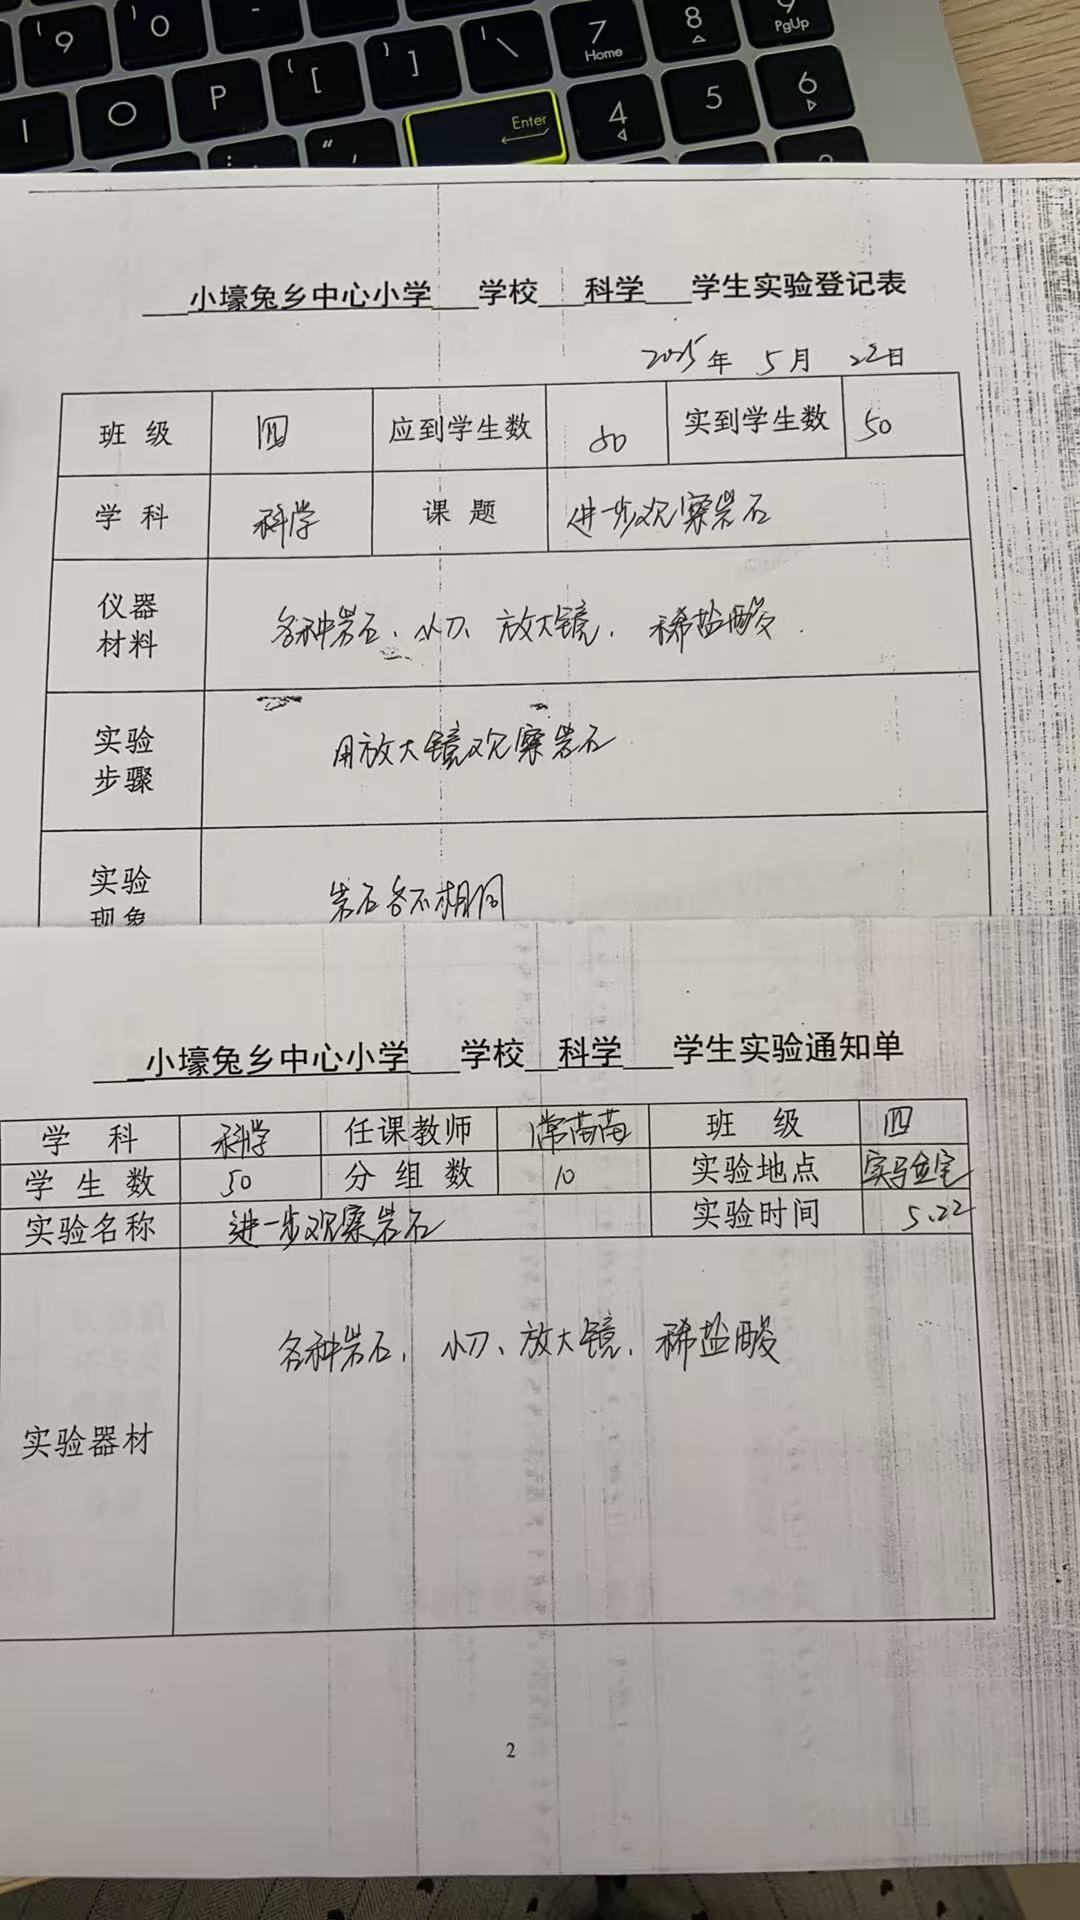 9 0 - 7 Home 8 9 PgUp
I O P [ ] \ 4 5 6
Enter
小壕兔乡中心小学 学校 科学 学生实验登记表
2025年 5月 22日
班级 四 应到学生数 50 实到学生数 50
学科 科学 课题 进一步观察岩石
仪器材料 各种岩石、小刀、放大镜、稀盐酸.
实验步骤 用放大镜观察岩石
实验现象 岩石各不相同
小壕兔乡中心小学 学校 科学 学生实验通知单
学科 科学 任课教师 常苗苗 班级 四
学生数 50 分组数 10 实验地点 实验室
实验名称 进一步观察岩石 实验时间 5.22
实验器材 各种岩石、小刀、放大镜、稀盐酸
2